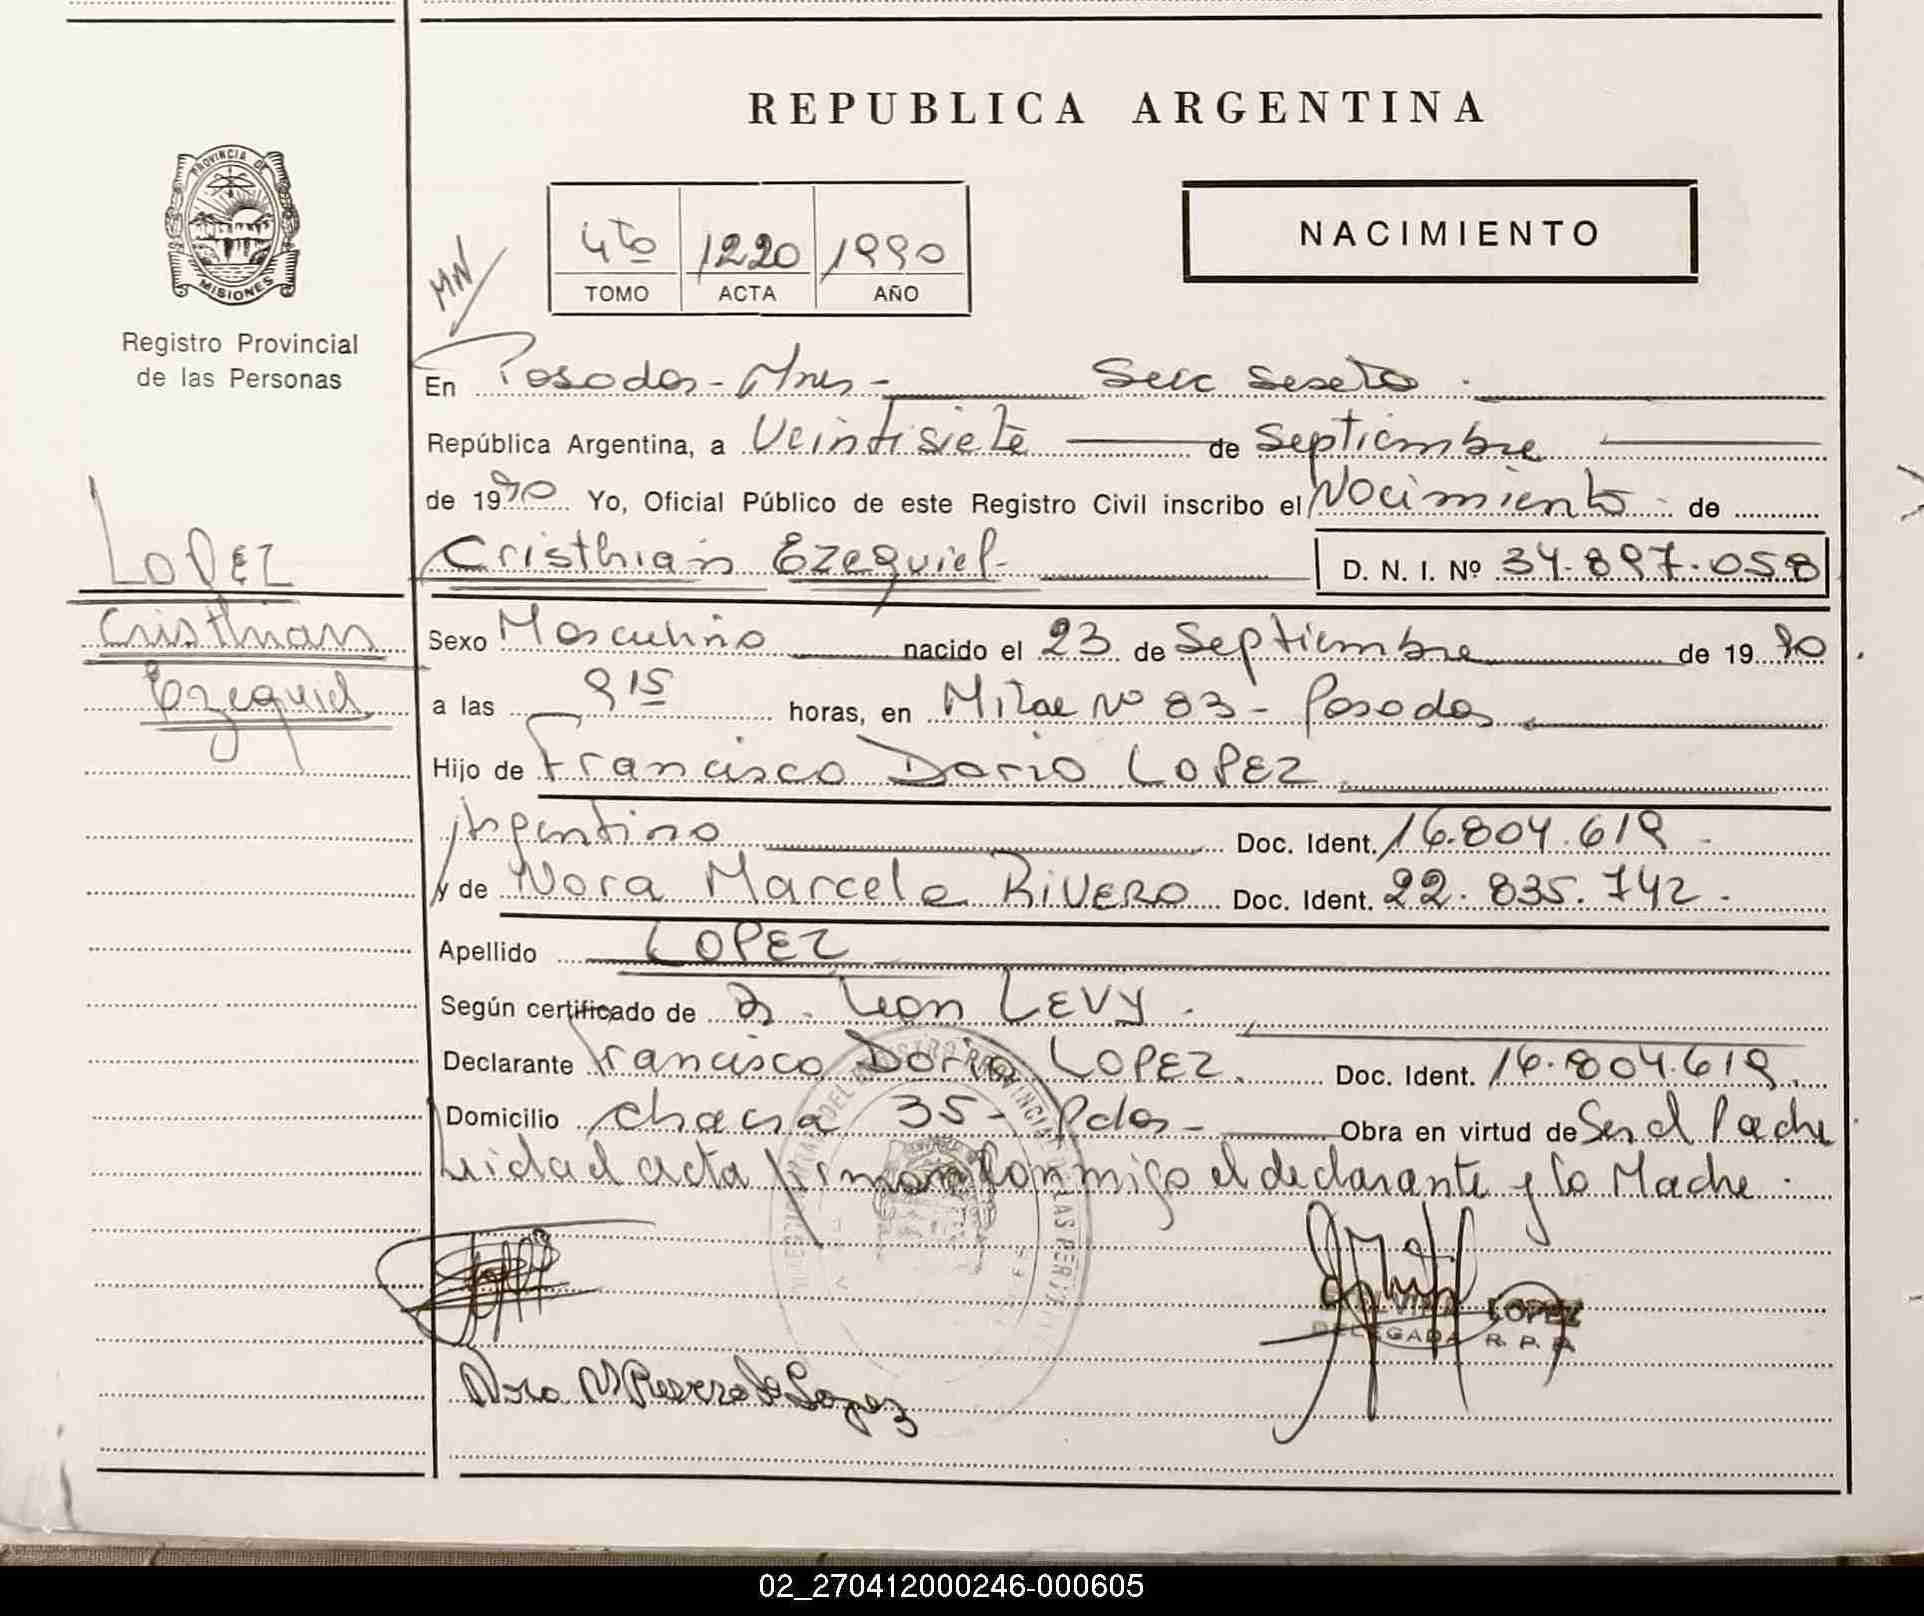 REPUBLICA ARGENTINA
PROVINCIA DE
MISIONES
Registro Provincial
de las Personas
MN
4to 1220 1990
TOMO ACTA AÑO
NACIMIENTO
En Posadas - Mnes - Secc Sexta .
República Argentina, a Veintisiete de Septiembre
de 1990 Yo, Oficial Público de este Registro Civil inscribo el Nacimiento de
Cristhian Ezequiel- D. N. I. Nº 34.897.058
LOPEZ
Cristhian
Ezequiel
Sexo Masculino nacido el 23 de Septiembre de 1990
a las 9 15 horas, en Mitre Nº 83 - Posadas
Hijo de Francisco Dario LOPEZ
Argentino Doc. Ident. 16.804.619 -
y de Nora Marcela RIVERO Doc. Ident. 22.835.742 -
Apellido LOPEZ
Según certificado de Dr. Leon LEVY .
Declarante Francisco Dario LOPEZ. Doc. Ident. 16.804.619.
Domicilio chacra 35 - Pdas - Obra en virtud de Ser el Padre
Leida el acta firman Conmigo el declarante y la Madre .
LOPEZ
DELEGADA R. P. P.
Nora M Rivero de Lopez
02_270412000246-000605